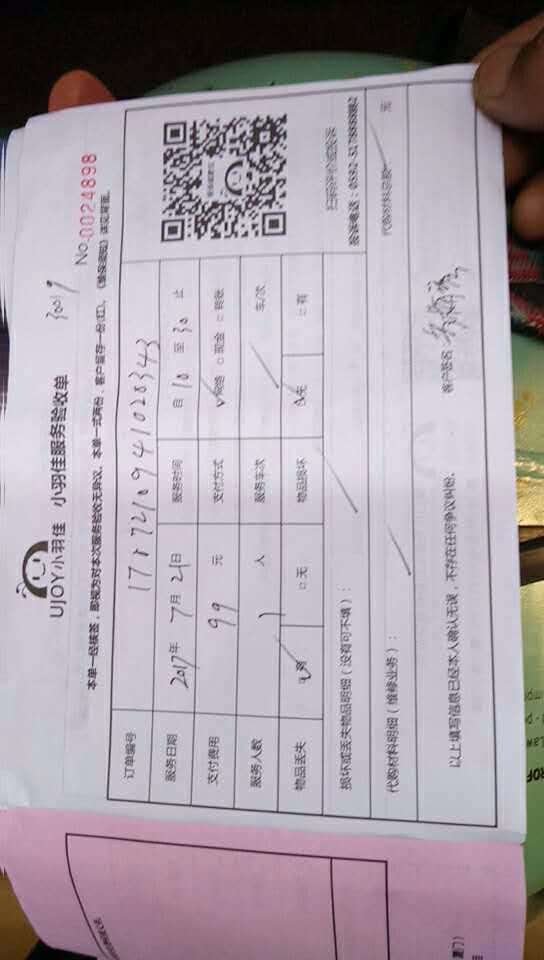 UJOY小羽佳 小羽佳服务验收单
30019
No.0024898
本单一经核签，即视为对本次服务验收无异议。本单一式两份，客户留存一份(红)。《售保须知》详见背面。
订单编号 1707210941028343
服务日期 2017年 7月21日 服务时间 自 10 至 30 止
支付费用 99 元 支付方式 ☑网络 □现金 □转账
服务人数 1 人 服务车次 车/次
物品丢失 ☑有 □无 物品损坏 ☑无 □有
扫码评价或投诉
投诉电话：0592-5179888882
损坏或丢失物品明细（没有可不填）：
代购材料明细（维修业务）： 代购材料总额 元
以上填写信息已经本人确认无误，不存在任何争议纠纷。 客户签名